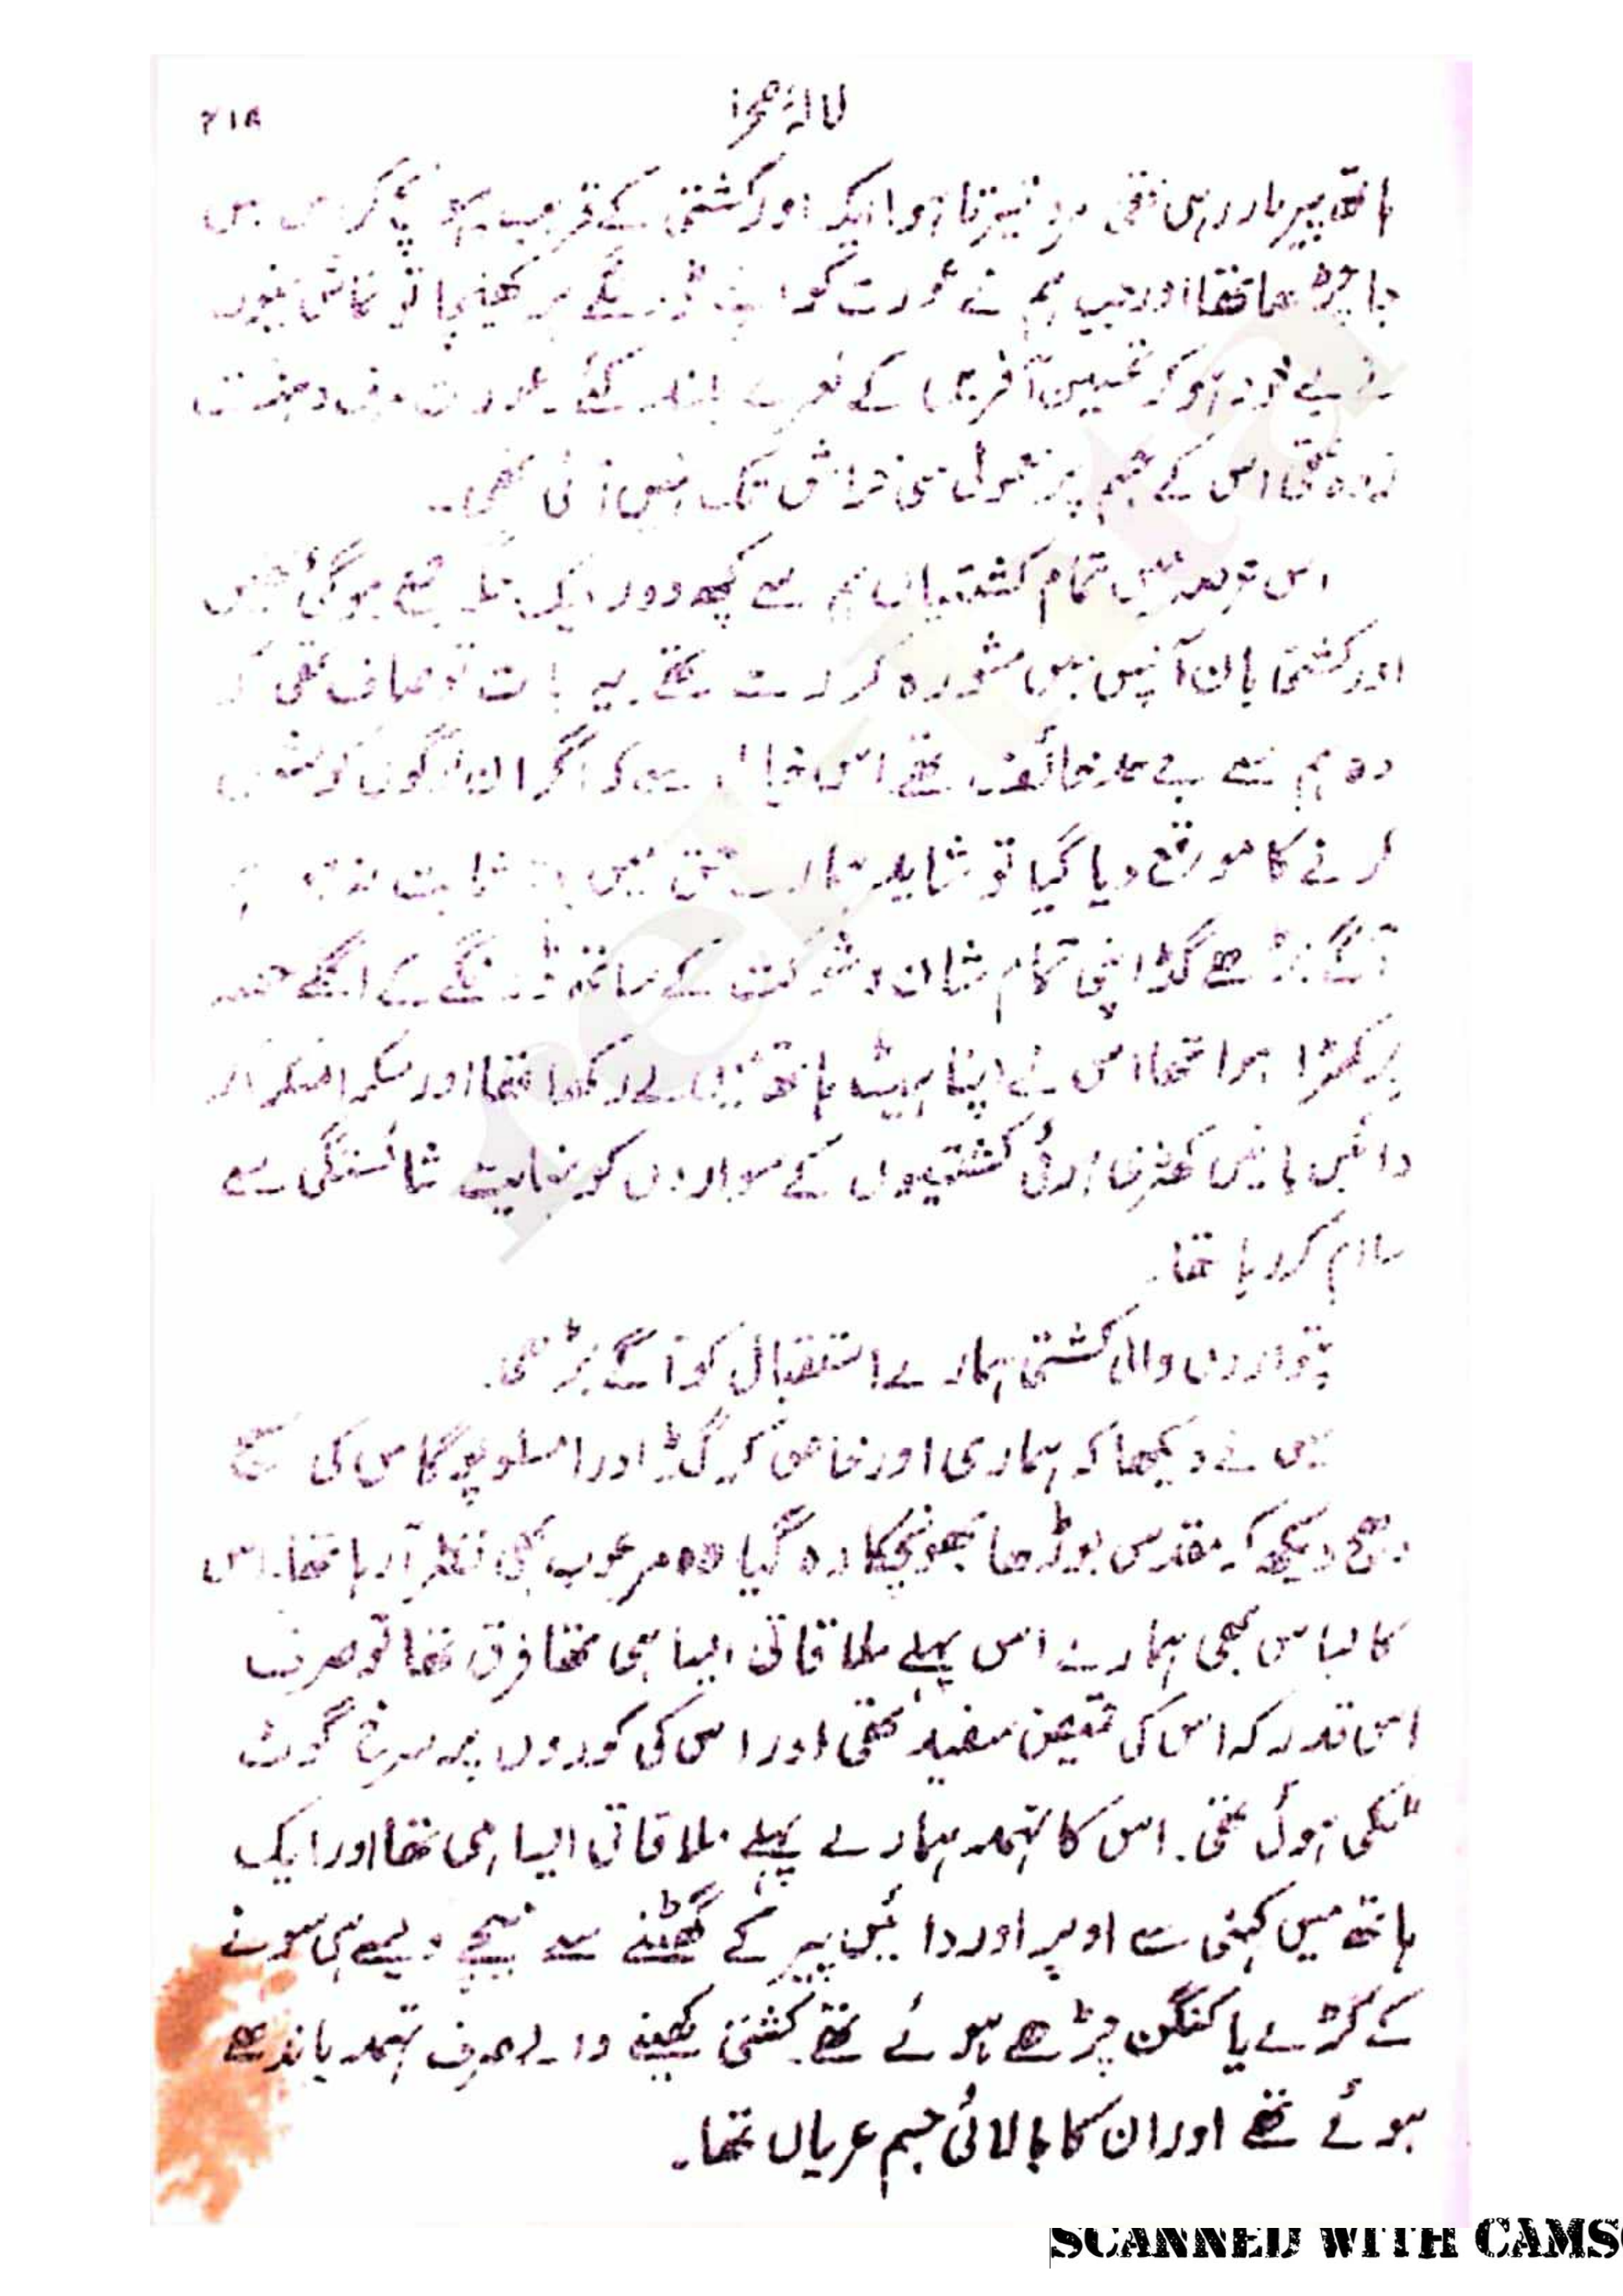 لالۂ صحرا
۲۱۸
ہاتھ پیر مار رہی تھی مرد تیرتا ہوا ایک اور کشتی کے قریب پہو پخ کر اس میں
جا چڑھا تھا اور جب ہم نے عورت کو اپنے ڈونگے پر کھینچا تو تماش بینوں
نے بے خود ہو کر تحسین آفریں کے نعرے بلند کئے۔ عورت صرف دہشت
زدہ تھی اس کے جسم پر معمولی سی خراش تک نہیں آئی تھی۔
اس عرصہ میں تمام کشتیاں ہم سے کچھ دور ایک جگہ جمع ہو گئی تھیں
اور کشتی بان آپس میں مشورہ کر رہے تھے یہ بات تو صاف تھی کہ
وہ ہم سے بے حد خائف تھے اس خیال سے کہ اگر ان لوگوں کو مشورہ
کرنے کا موقع دیا گیا تو شاید ہمارے حق میں ثابت نہ ہو ہم
آگے بڑھے گڈ اپنی تمام شان و شوکت کے ساتھ ڈونگے کے اگلے حصہ
پر کھڑا ہوا تھا اس نے اپنا ہیٹ ہاتھ میں لے رکھا تھا اور مسکرا مسکرا کر
دائیں بائیں کھڑی ہوئی کشتیوں کے سواروں کو نہایت شائستگی سے
سلام کر رہا تھا۔
پتواروں والی کشتی ہمارے استقبال کو آگے بڑھی۔
میں نے دیکھا کہ ہماری اور خاص کر گڈ اور امسلوپوگاس کی سج
دھج دیکھ کر مقدس بوڑھا بھونچکا رہ گیا وہ مرعوب بھی نظر آ رہا تھا۔ اس
کا لباس بھی ہمارے اس پہلے ملاقاتی ایسا ہی تھا فرق تھا تو صرف
اس قدر کہ اس کی قمیص سفید تھی اور اس کی کوروں پر سرخ گوٹ
ٹکی ہوئی تھی۔ اس کا تہمد ہمارے پہلے ملاقاتی ایسا ہی تھا اور ایک
ہاتھ میں کہنی سے اوپر اور دائیں پیر کے گھٹنے سے نیچے ویسے ہی سونے
کے کڑے یا کنگن چڑھے ہوئے تھے۔ کشتی کھینے والے صرف تہمد باندھے
ہوئے تھے اور ان کا بالائی جسم عریاں تھا۔
rekhta
SCANNED WITH CAMS